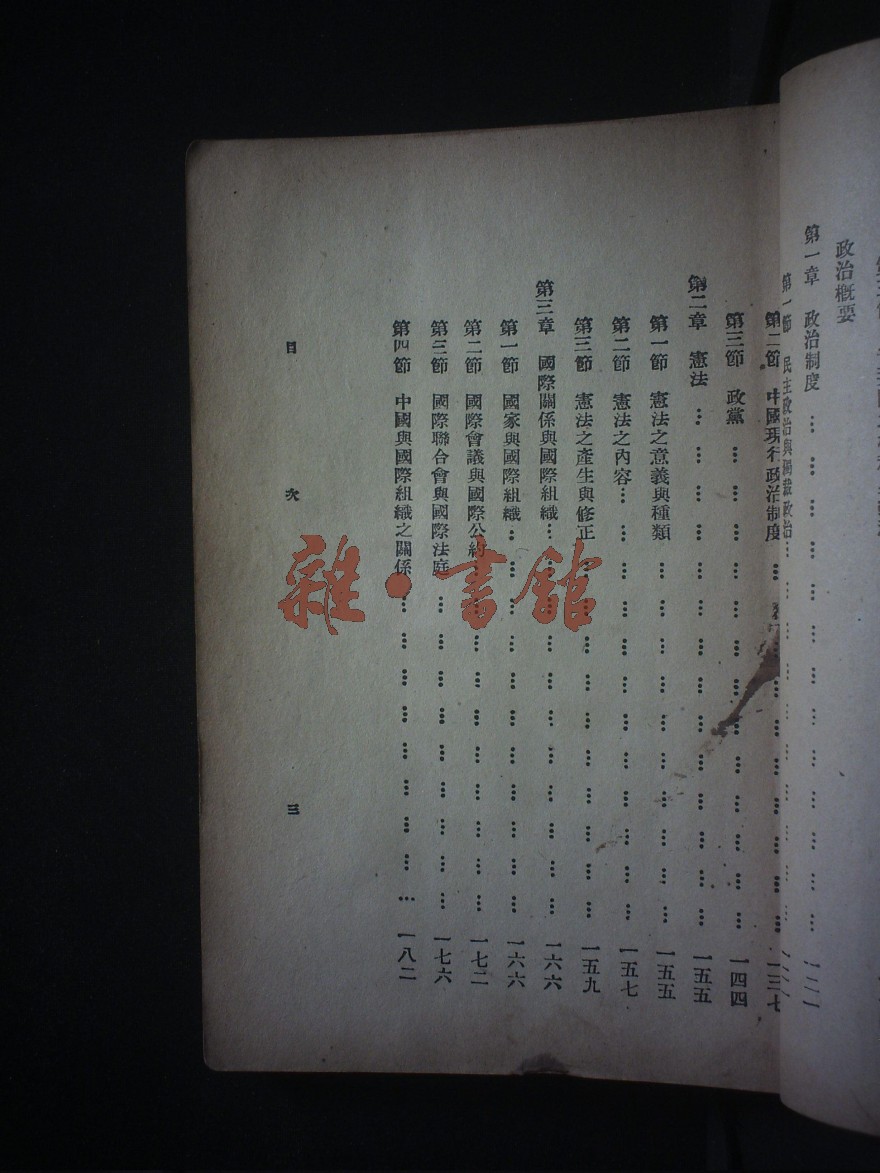 政治概要
第一章 政治制度 … … … … … … … … … … … … … …
第一節 民主政治與獨裁政治… … … … … … … … … … …
第二節 中國現行政治制度 … … … … … … … … … 一三七
第三節 政黨 … … … … … … … … … … … … … … 一四四
第二章 憲法 … … … … … … … … … … … … … … … 一五五
第一節 憲法之意義與種類 … … … … … … … … … … 一五五
第二節 憲法之內容… … … … … … … … … … … … 一五七
第三節 憲法之產生與修正 … … … … … … … … … … 一五九
第三章 國際關係與國際組織… … … … … … … … … … … 一六六
第一節 國家與國際組織… … … … … … … … … … … 一六六
第二節 國際會議與國際公約… … … … … … … … … … 一七二
第三節 國際聯合會與國際法庭 … … … … … … … … … 一七六
第四節 中國與國際組織之關係… … … … … … … … … 一八二
目 次 三
雜·書館